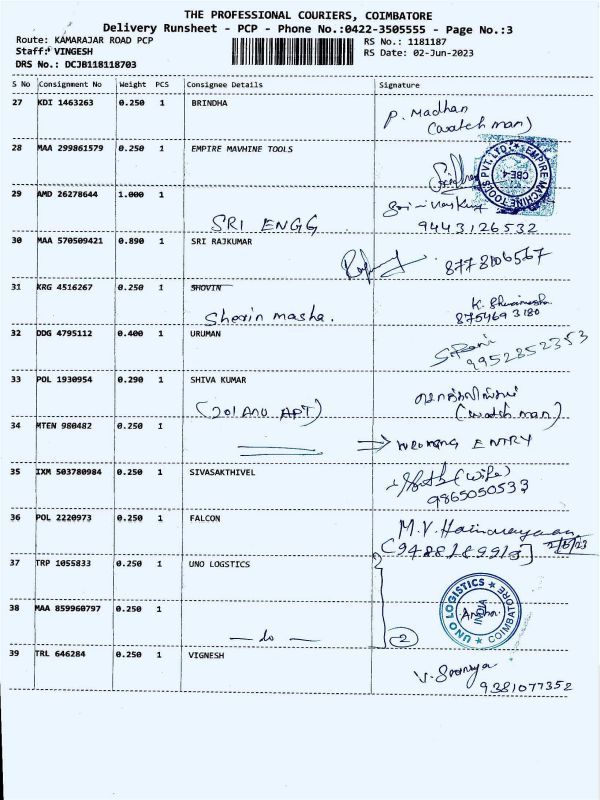 THE PROFESSIONAL COURIERS, COIMBATORE
Delivery Runsheet - PCP - Phone No.:0422-3505555 - Page No.:3
Route: KAMARAJAR ROAD PCP RS No.: 1181187
Staff: VINGESH RS Date: 02-Jun-2023
DRS No.: DCJB118118703
S No Consignment No Weight PCS Consignee Details Signature
27 KDI 1463263 0.250 1 BRINDHA
P. Madhan
(watch man)
28 MAA 299861579 0.250 1 EMPIRE MAVHINE TOOLS
EMPIRE MACHINE TOOLS PVT. LTD.
CBE-4
29 AMD 26278644 1.000 1
SRI ENGG 9443126532
30 MAA 570509421 0.890 1 SRI RAJKUMAR
8778106567
31 KRG 4516267 0.250 1 SHOVIN
Sherin masha. 8754693180
32 DDG 4795112 0.400 1 URUMAN
9952852353
33 POL 1930954 0.290 1 SHIVA KUMAR
(201 ANU APT) (watch man)
34 MTEN 980482 0.250 1
ENTRY
35 IXM 503780984 0.250 1 SIVASAKTHIVEL
(wife)
9865050533
36 POL 2220973 0.250 1 FALCON
M.V.
37 TRP 1055833 0.250 1 UNO LOGSTICS
UNO LOGISTICS
INDIA
COIMBATORE
38 MAA 859960797 0.250 1
do 2
39 TRL 646284 0.250 1 VIGNESH
9381077352